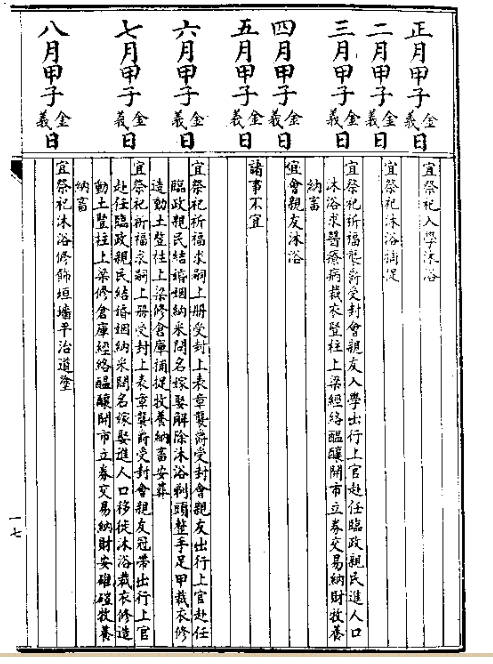 正月甲子金義日
宜祭祀入學沐浴
二月甲子金義日
宜祭祀沐浴捕捉
三月甲子金義日
宜祭祀祈福襲爵受封會親友入學出行上官赴任臨政親民進人口
沐浴求醫療病裁衣豎柱上梁經絡醖釀開市立券交易納財牧養
納畜
四月甲子金義日
宜會親友沐浴
五月甲子金義日
諸事不宜
六月甲子金義日
宜祭祀祈福求嗣上册受封上表章襲爵受封會親友出行上官赴任
臨政親民結婚姻納采問名嫁娶解除沐浴剃頭整手足甲裁衣修
造動土豎柱上梁修倉庫捕捉牧養納畜安葬
七月甲子金義日
宜祭祀祈福求嗣上册受封上表章襲爵受封會親友冠帶出行上官
赴任臨政親民結婚姻納采問名嫁娶進人口移徙沐浴裁衣修造
動土豎柱上梁修倉庫經絡醖釀開市立券交易納財安碓磑牧養
納畜
八月甲子金義日
宜祭祀沐浴修飾垣墻平治道塗
一七